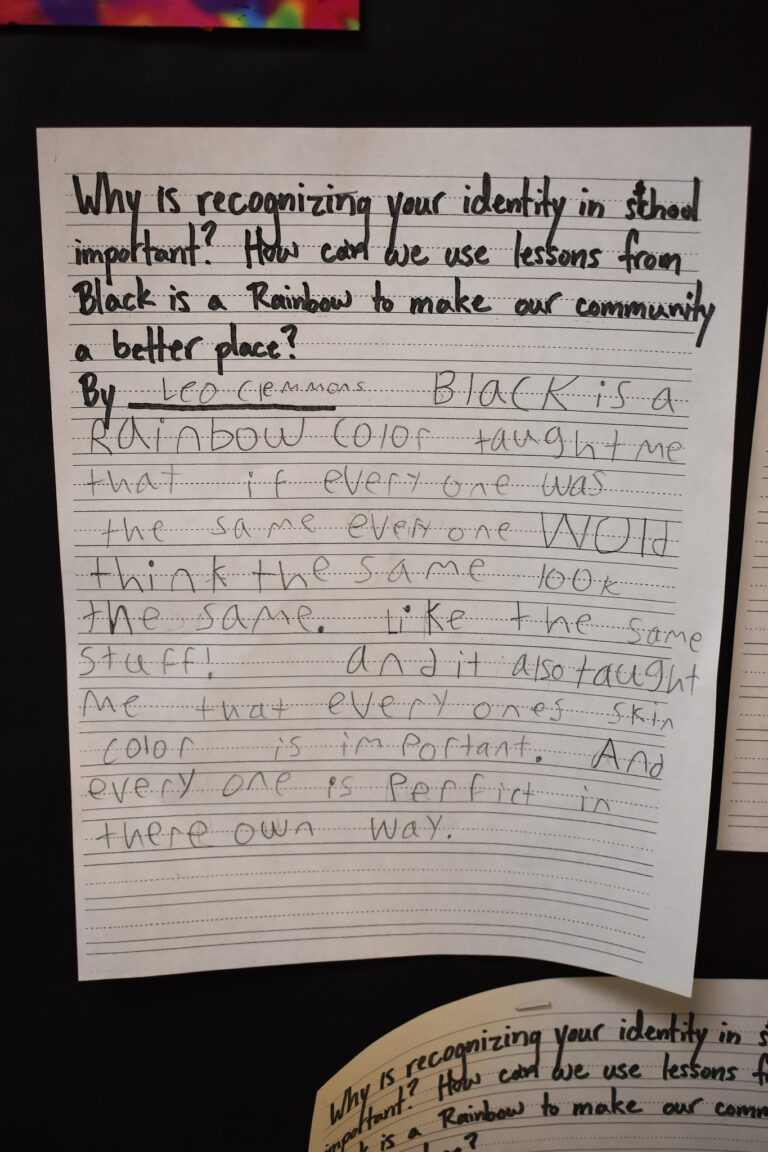 Why is recognizing your identity in school
important? How can we use lessons from
Black is a Rainbow to make our community
a better place?
By Leo Clemmons Black is a
Rainbow Color taught me
that if every one was
the same every one WOld
think the same look
the same. Like the same
stuff! and it also taught
me that every ones skin
color is important. And
every one is Perfict in
there own way.
Why is recognizing your identity in s
important? How can we use lessons f
k is a Rainbow to make our comm
?